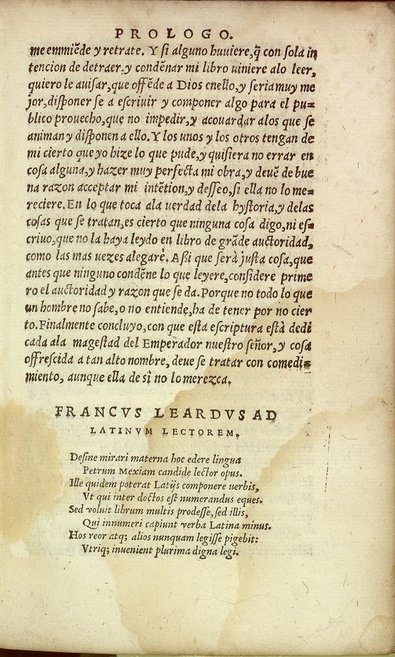 PROLOGO.
me emmiẽde y retrate. Y si alguno huuiere, q̃ con sola in
tencion de detraer, y condẽnar mi libro viniere alo leer,
quiero le auisar, que offẽde a Dios enello, y seria muy me
jor, disponer se a escriuir y componer algo para el pu-
blico prouecho, que no impedir, y acouardar alos que se
animan y disponen a ello. Y los unos y los otros tengan de
mi cierto que yo hize lo que pude, y quisiera no errar en
cosa alguna, y hazer muy perfecta mi obra, y deuẽ de bue
na razon acceptar mi intẽtion, y desseo, si ella no lo me-
reciere. En lo que toca ala verdad dela hystoria, y delas
cosas que se tratan, es cierto que ninguna cosa digo, ni es-
criuo, que no la haya leydo en libro de grãde auctoridad,
como las mas vezes alegarè. Assi que serà justa cosa, que
antes que ninguno condẽne lo que leyere, considere prime
ro el auctoridad y razon que se da. Porque no todo lo que
un hombre no sabe, o no entiende, ha de tener por no cier
to. Finalmente concluyo, con que esta escriptura està dedi
cada ala magestad del Emperador nuestro señor, y cosa
offrescida a tan alto nombre, deue se tratar con comedi-
miento, aunque ella de sì no lo merezca.
FRANCVS LEARDVS AD
LATINVM LECTOREM.
Desine mirari materna hoc edere lingua
Petrum Mexiam candide lector opus.
Ille quidem poterat Latijs componere uerbis,
Vt qui inter doctos est numerandus eques.
Sed voluit librum multis prodesse, sed illis,
Qui innumeri capiunt verba Latina minus.
Hos reor atq; alios nunquam legisse pigebit:
Vtriq; inuenient plurima digna legi.